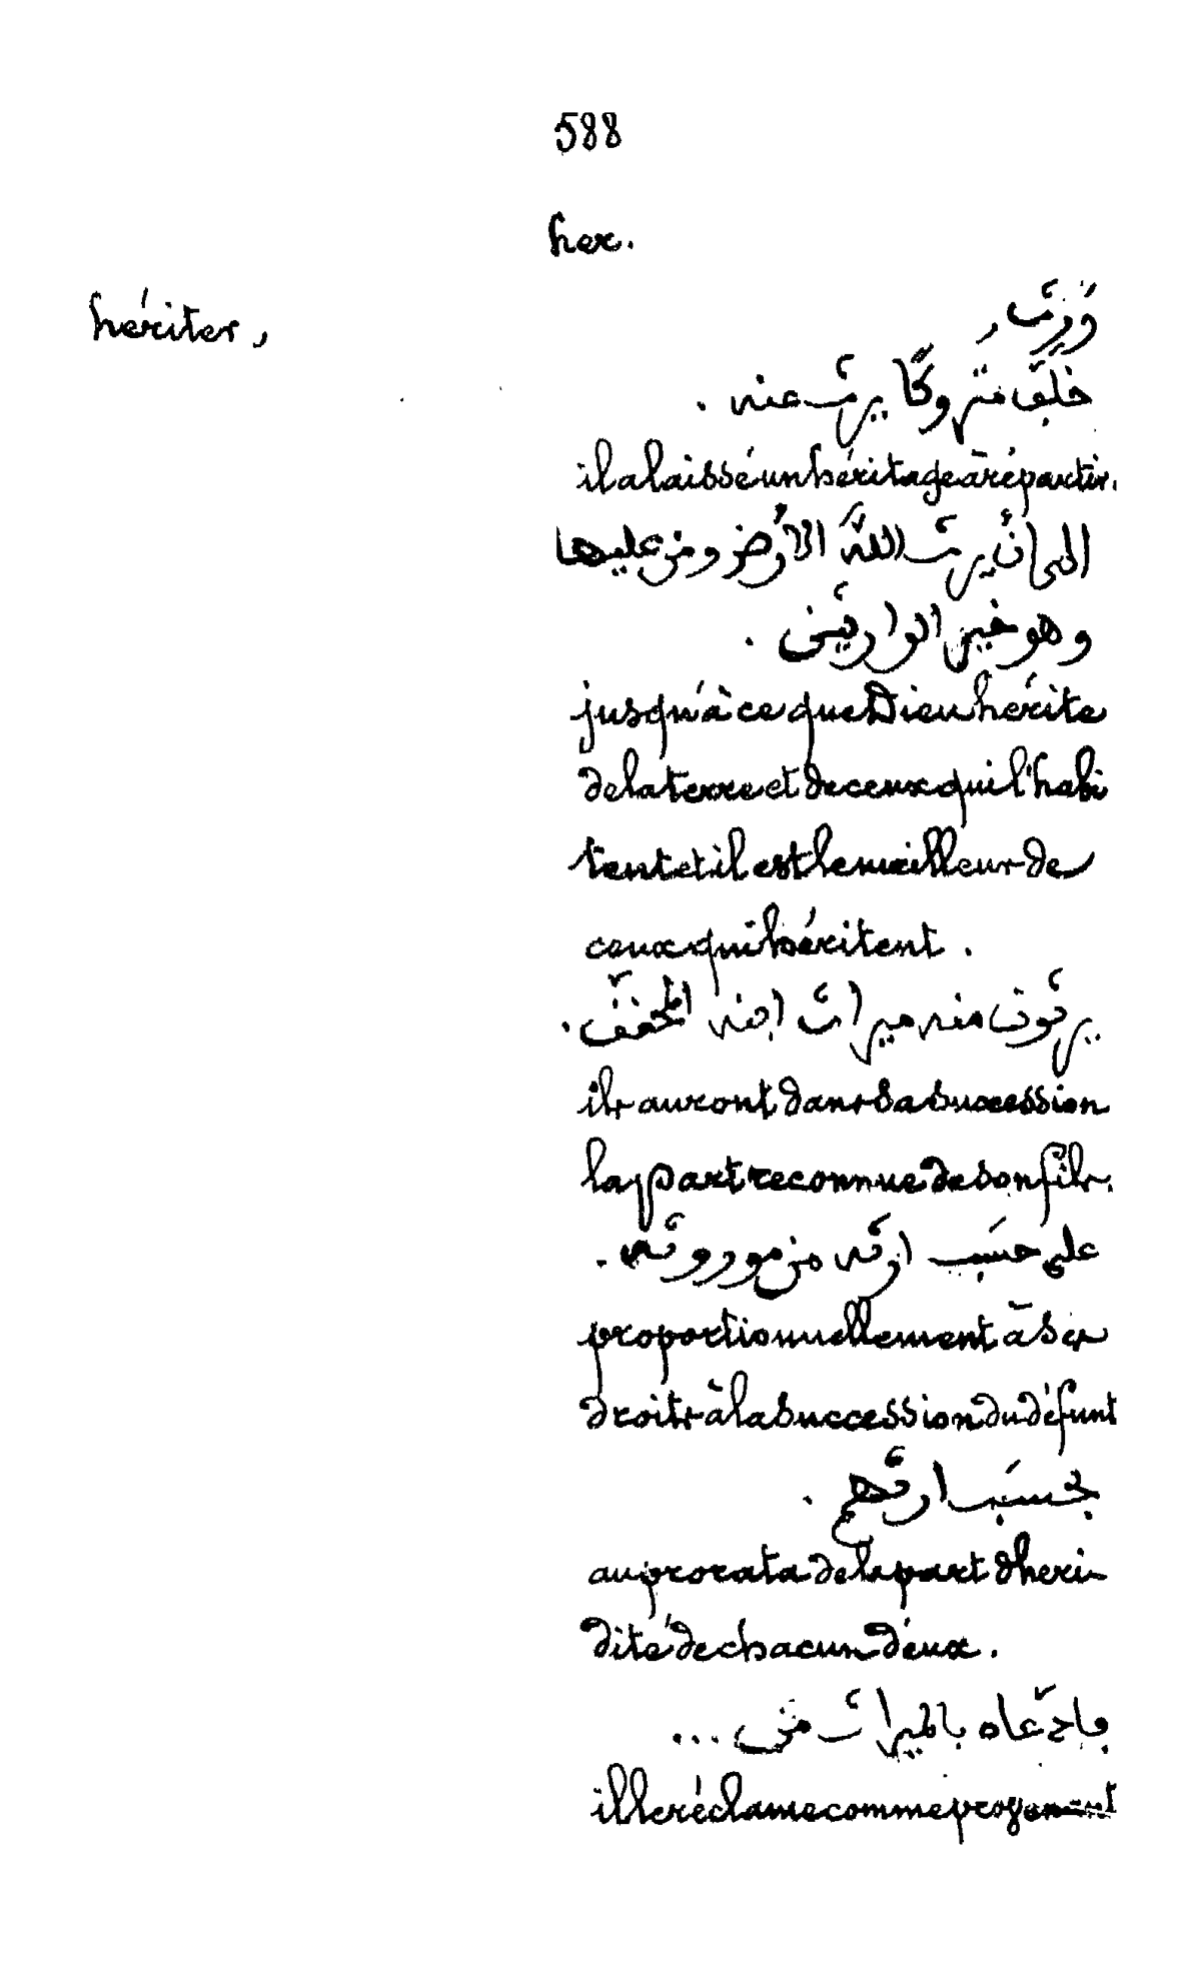 588
her.
hériter,
وَرِثَ
خلّف متروكًا يرث عنه .
il a laissé un héritage à répartir.
الى ان يرث اللهُ الارض ومن عليها
وهو خير الوارثين .
jusqu'à ce que Dieu hérite
de la terre et de ceux qui l'habi
tent et il est le meilleur de
ceux qui héritent .
يرثون منه ميراث ابنه المحقق .
ils auront dans sa succession
la part reconnue de son fils.
على حسَب ارثه من موروثه .
proportionnellement à ses
droits à la succession du défunt
بحسَب ارثهم .
au prorata de la part d'héri-
dité de chacun d'eux .
فادّعاه بالميراث من ...
il le réclame comme provenant